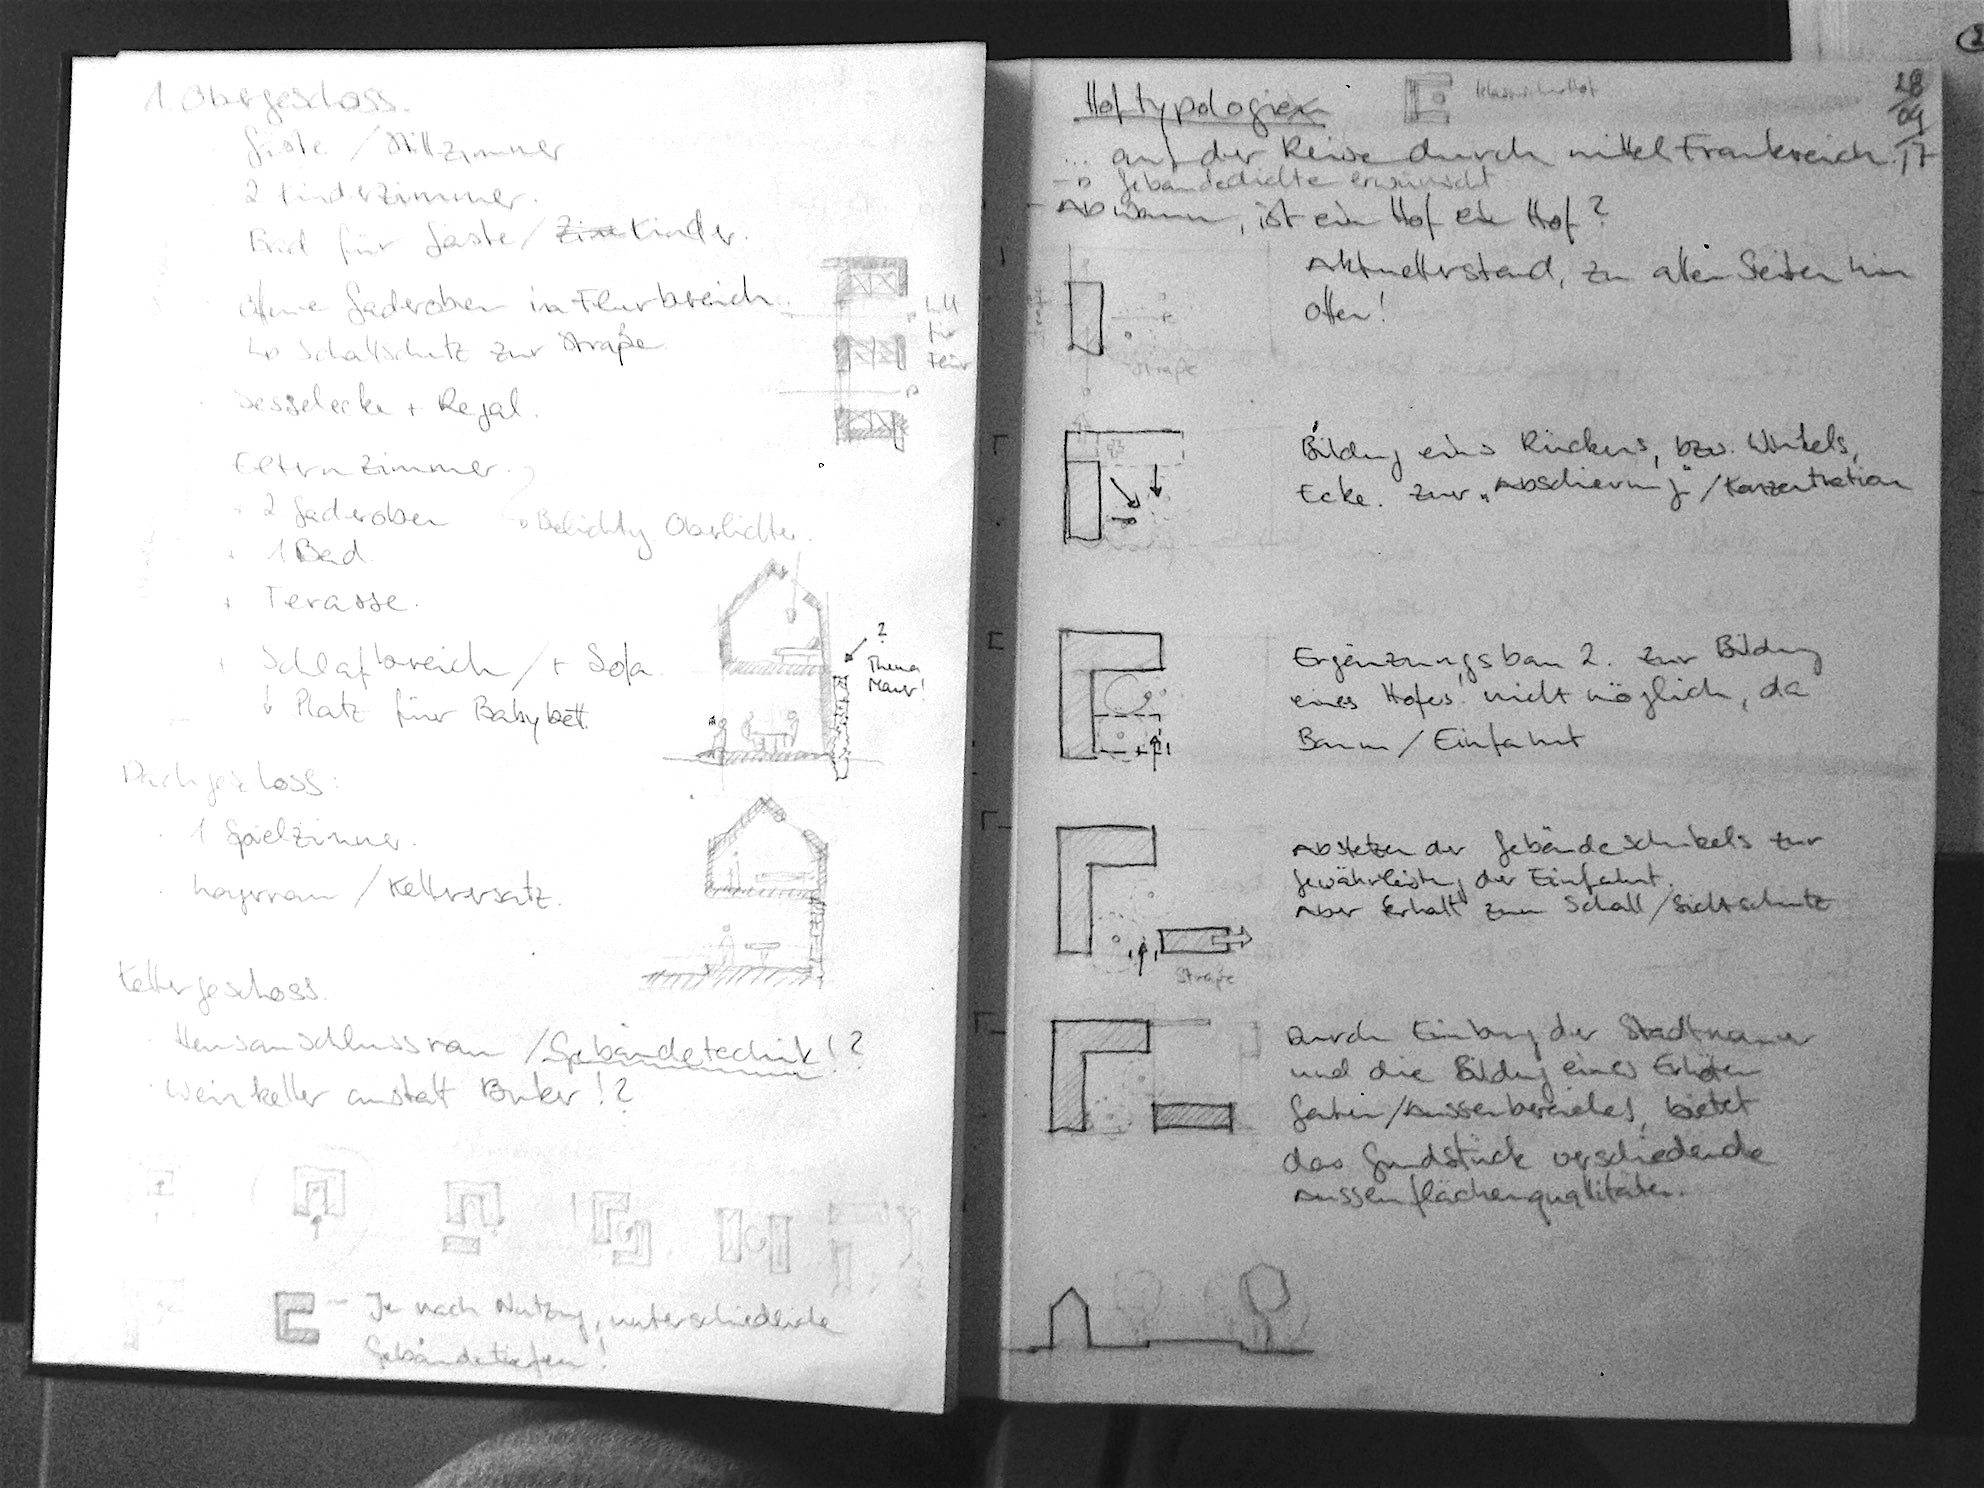 1. Obergeschoss.
Gäste / Stillzimmer
2 Kinderzimmer.
Bad für Gäste / Kinder.
Offene Gaderoben in Flurbereich.
↳ Schallschutz zur Straße
Sesselecke + Regal.
Luft
für
Elternzimmer.
+ 2 Gaderoben → Belichtg Oberlichter.
+ 1 Bad
+ Terasse.
+ Schlafbreich / + Sofa.
↓ Platz für Babybett.
?
Thema
Mauer!
Dachgeschoss:
· 1 Spielzimmer.
· Lagerraum / Kellerersatz.
Kellergeschoss.
· Hausanschlussraum / Gebäudetechnik!?
· Weinkeller anstatt Bunker!?
Je nach Nutzung, unterschiedliche
Gebäudetiefen!
Hoftypologien
28/09/17
... auf der Reise durch mittel Frankreich.
→ Gebäudedichte erwünscht
Ab wann, ist ein Hof ein Hof?
Aktuellerstand, zu allen Seiten hin
Offen!
Straße
Bildung eines Rückens, bzw. Winkels,
Ecke. zur „Abschirmung" / Konzentration
Ergänzungsbau 2. zur Bildung
eines Hofes nicht möglich, da
Baum / Einfahrt
Absetzen der Gebäudeschenkels zur
Gewährleistung der Einfahrt.
Aber Erhalt zum Schall / Sichtschutz
Straße
Durch Einbung der Stadtmauer
und die Bildung eines Erhöten
Garten / Aussenbereiches, bietet
das Grundstück verschiedende
Aussenflächenqualitäten.